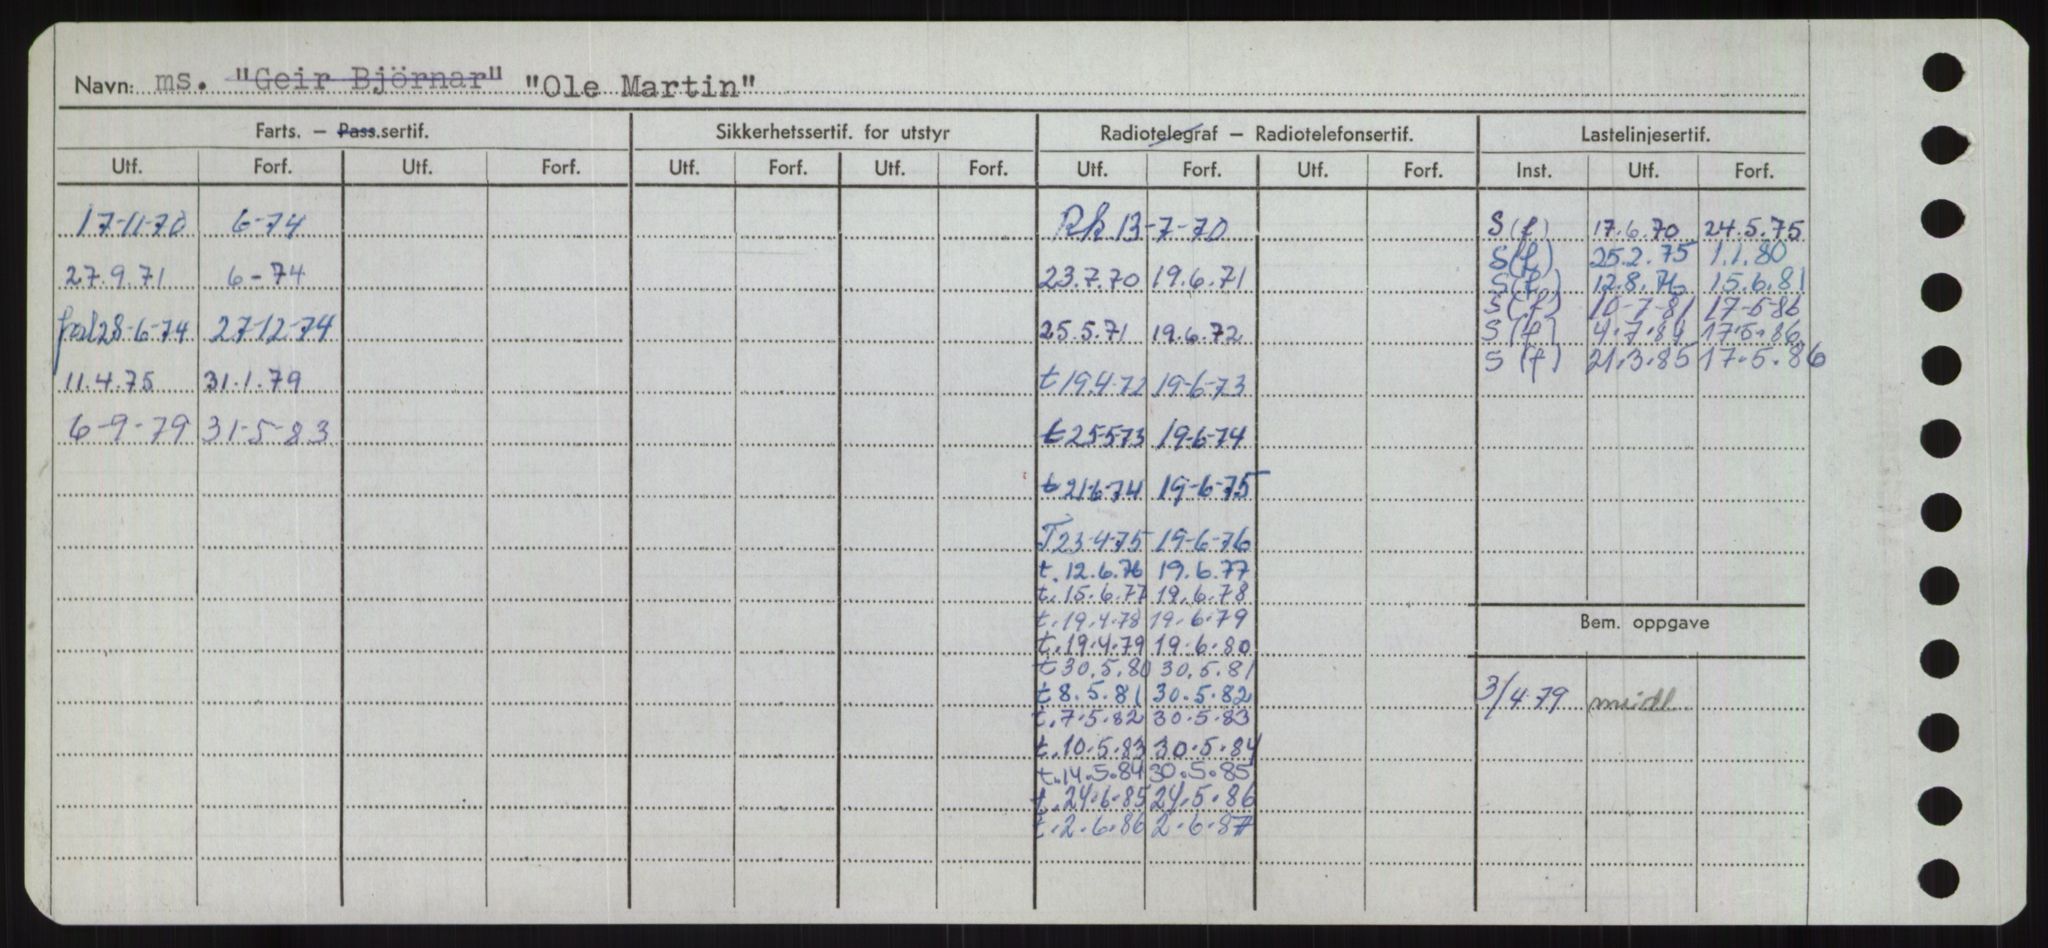 Navn: ms. "Geir Björnar" "Ole Martin"
Farts. – Pass.sertif. Sikkerhetssertif. for utstyr Radiotelegraf – Radiotelefonsertif. Lastelinjesertif.
Utf. Forf. Utf. Forf. Utf. Forf. Utf. Forf. Utf. Forf. Utf. Forf. Inst. Utf. Forf.
17-11-70 6-74
27.9.71 6-74
28-6-74 27-12-74
11.4.75 31.1.79
6-9-79 31-5-83
Rk 13-7-70
23.7.70 19.6.71
25.5.71 19.6.72
t 19.4.72 19-6-73
t 25-5-73 19-6-74
t 21-6-74 19-6-75
T 23-4-75 19-6-76
t. 12.6.76 19.6.77
t. 15.6.77 19.6.78
t. 19.4.78 19.6.79
t. 19.4.79 19.6.80
t 30.5.80 30.5.81
t 8.5.81 30.5.82
t. 7.5.82 30.5.83
t. 10.5.83 30.5.84
t. 14.5.84 30.5.85
t. 24.6.85 24.5.86
t. 2.6.86 2.6.87
S (f) 17.6.70 24.5.75
S (f) 25.2.75 1.1.80
S (f) 12.8.76 15.6.81
S (f) 10-7-81 17-5-86
S (f) 4.7.84 17.5.86
S (f) 21.3.85 17.5.86
Bem. oppgave
3/4.79 midl.